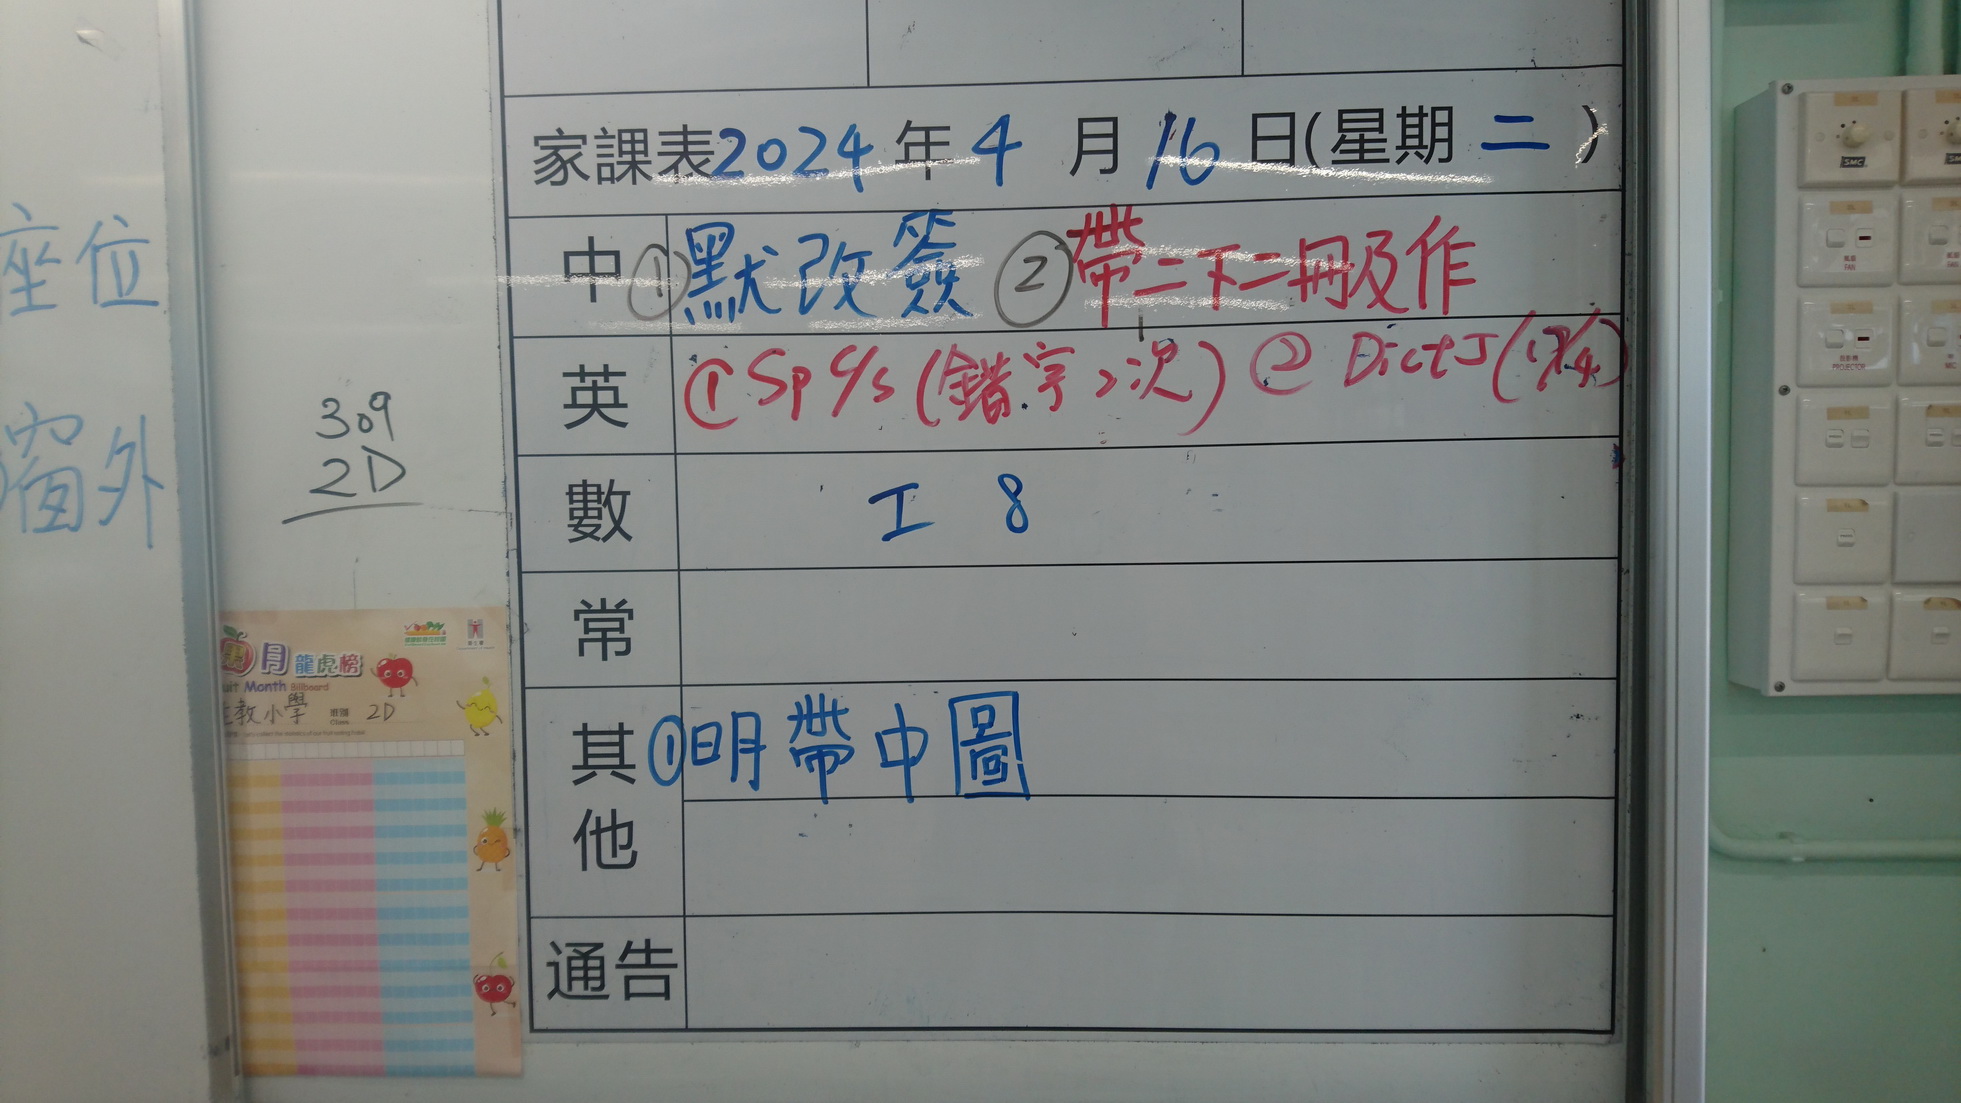 家課表2024年4月16日(星期二)
中 ①默改簽 ②帶二下二冊及作
英 ①Sp C/s (錯字2次) ② Dict J (17/4)
數 工 8
常
其他 ①明帶中圖
通告
座位
窗外
309
2D
果月龍虎榜
Fruit Month Billboard
教小學 班別 2D
Class
SMC
風扇
FAN
投影機
PROJECTOR
MIC